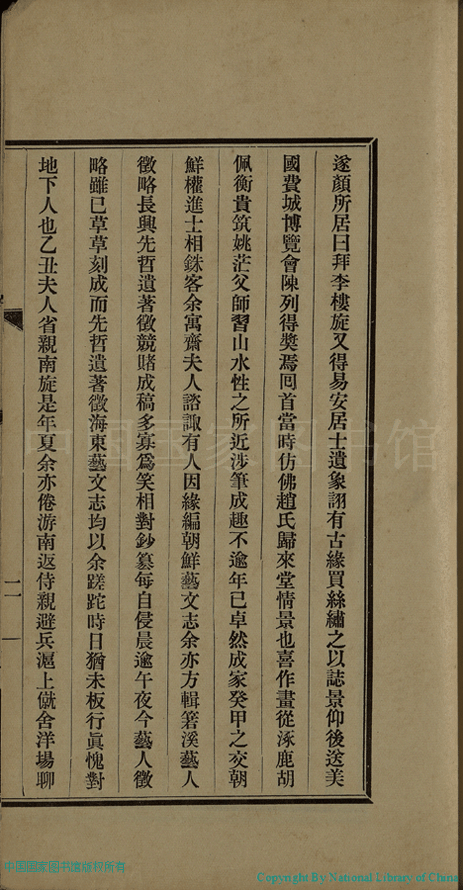 遂顏所居曰拜李樓旋又得易安居士遺象詡有古緣買絲繡之以誌景仰後送美
國費城博覽會陳列得奬焉囘首當時仿佛趙氏歸來堂情景也喜作畫從涿鹿胡
佩衡貴筑姚茫父師習山水性之所近涉筆成趣不逾年已卓然成家癸甲之交朝
鮮權進士相銖客余寓齋夫人諮諏有人因緣編朝鮮藝文志余亦方輯箬溪藝人
徵略長興先哲遺著徵競賭成稿多寡爲笑相對鈔纂每自侵晨逾午夜今藝人徵
略雖已草草刻成而先哲遺著徵海東藝文志均以余蹉跎時日猶未板行眞愧對
地下人也乙丑夫人省親南旋是年夏余亦倦游南返侍親避兵滬上僦舍洋場聊
二
中国国家图书馆
中国国家图书馆版权所有
Copyright By National Library of China